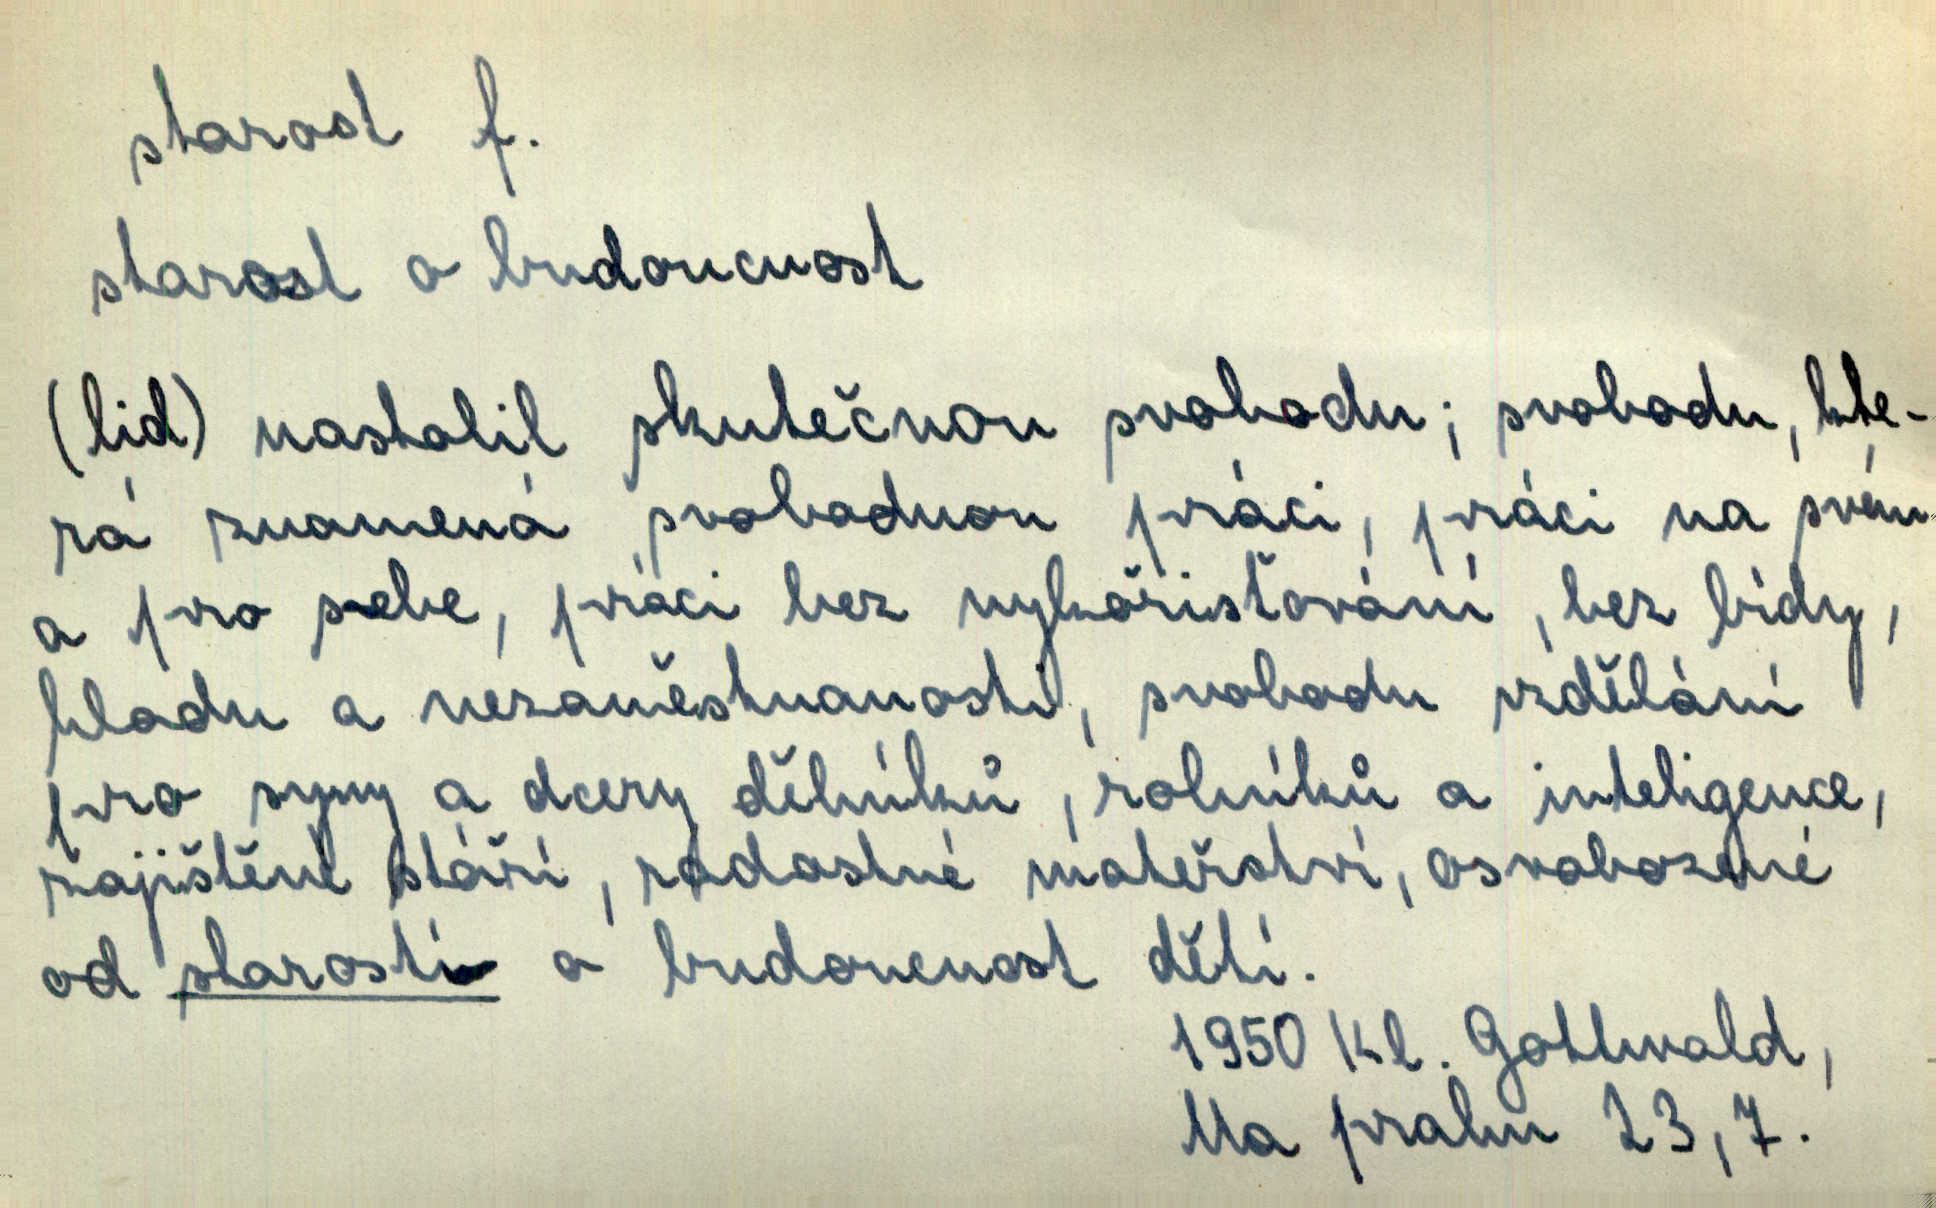 starost f.
starost o budoucnost
(lid) nastolil skutečnou svobodu; svobodu, kte-
rá znamená svobodnou práci, práci na svém
a pro sebe, práci bez vykořisťování, bez bídy,
hladu a nezaměstnanosti, svobodu vzdělání
pro syny a dcery dělníků, rolníků a inteligence,
zajištění stáří, radostné mateřství, osvobozené
od starostí o budoucnost dětí.
1950 Kl. Gottwald,
Na prahu 23,7.